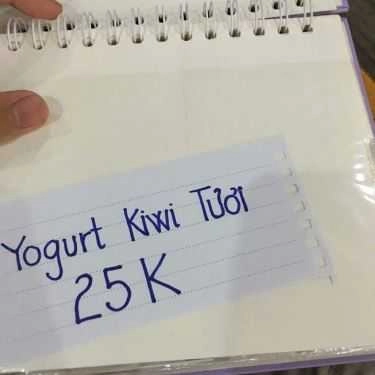 Yogurt Kiwi Tươi
25K